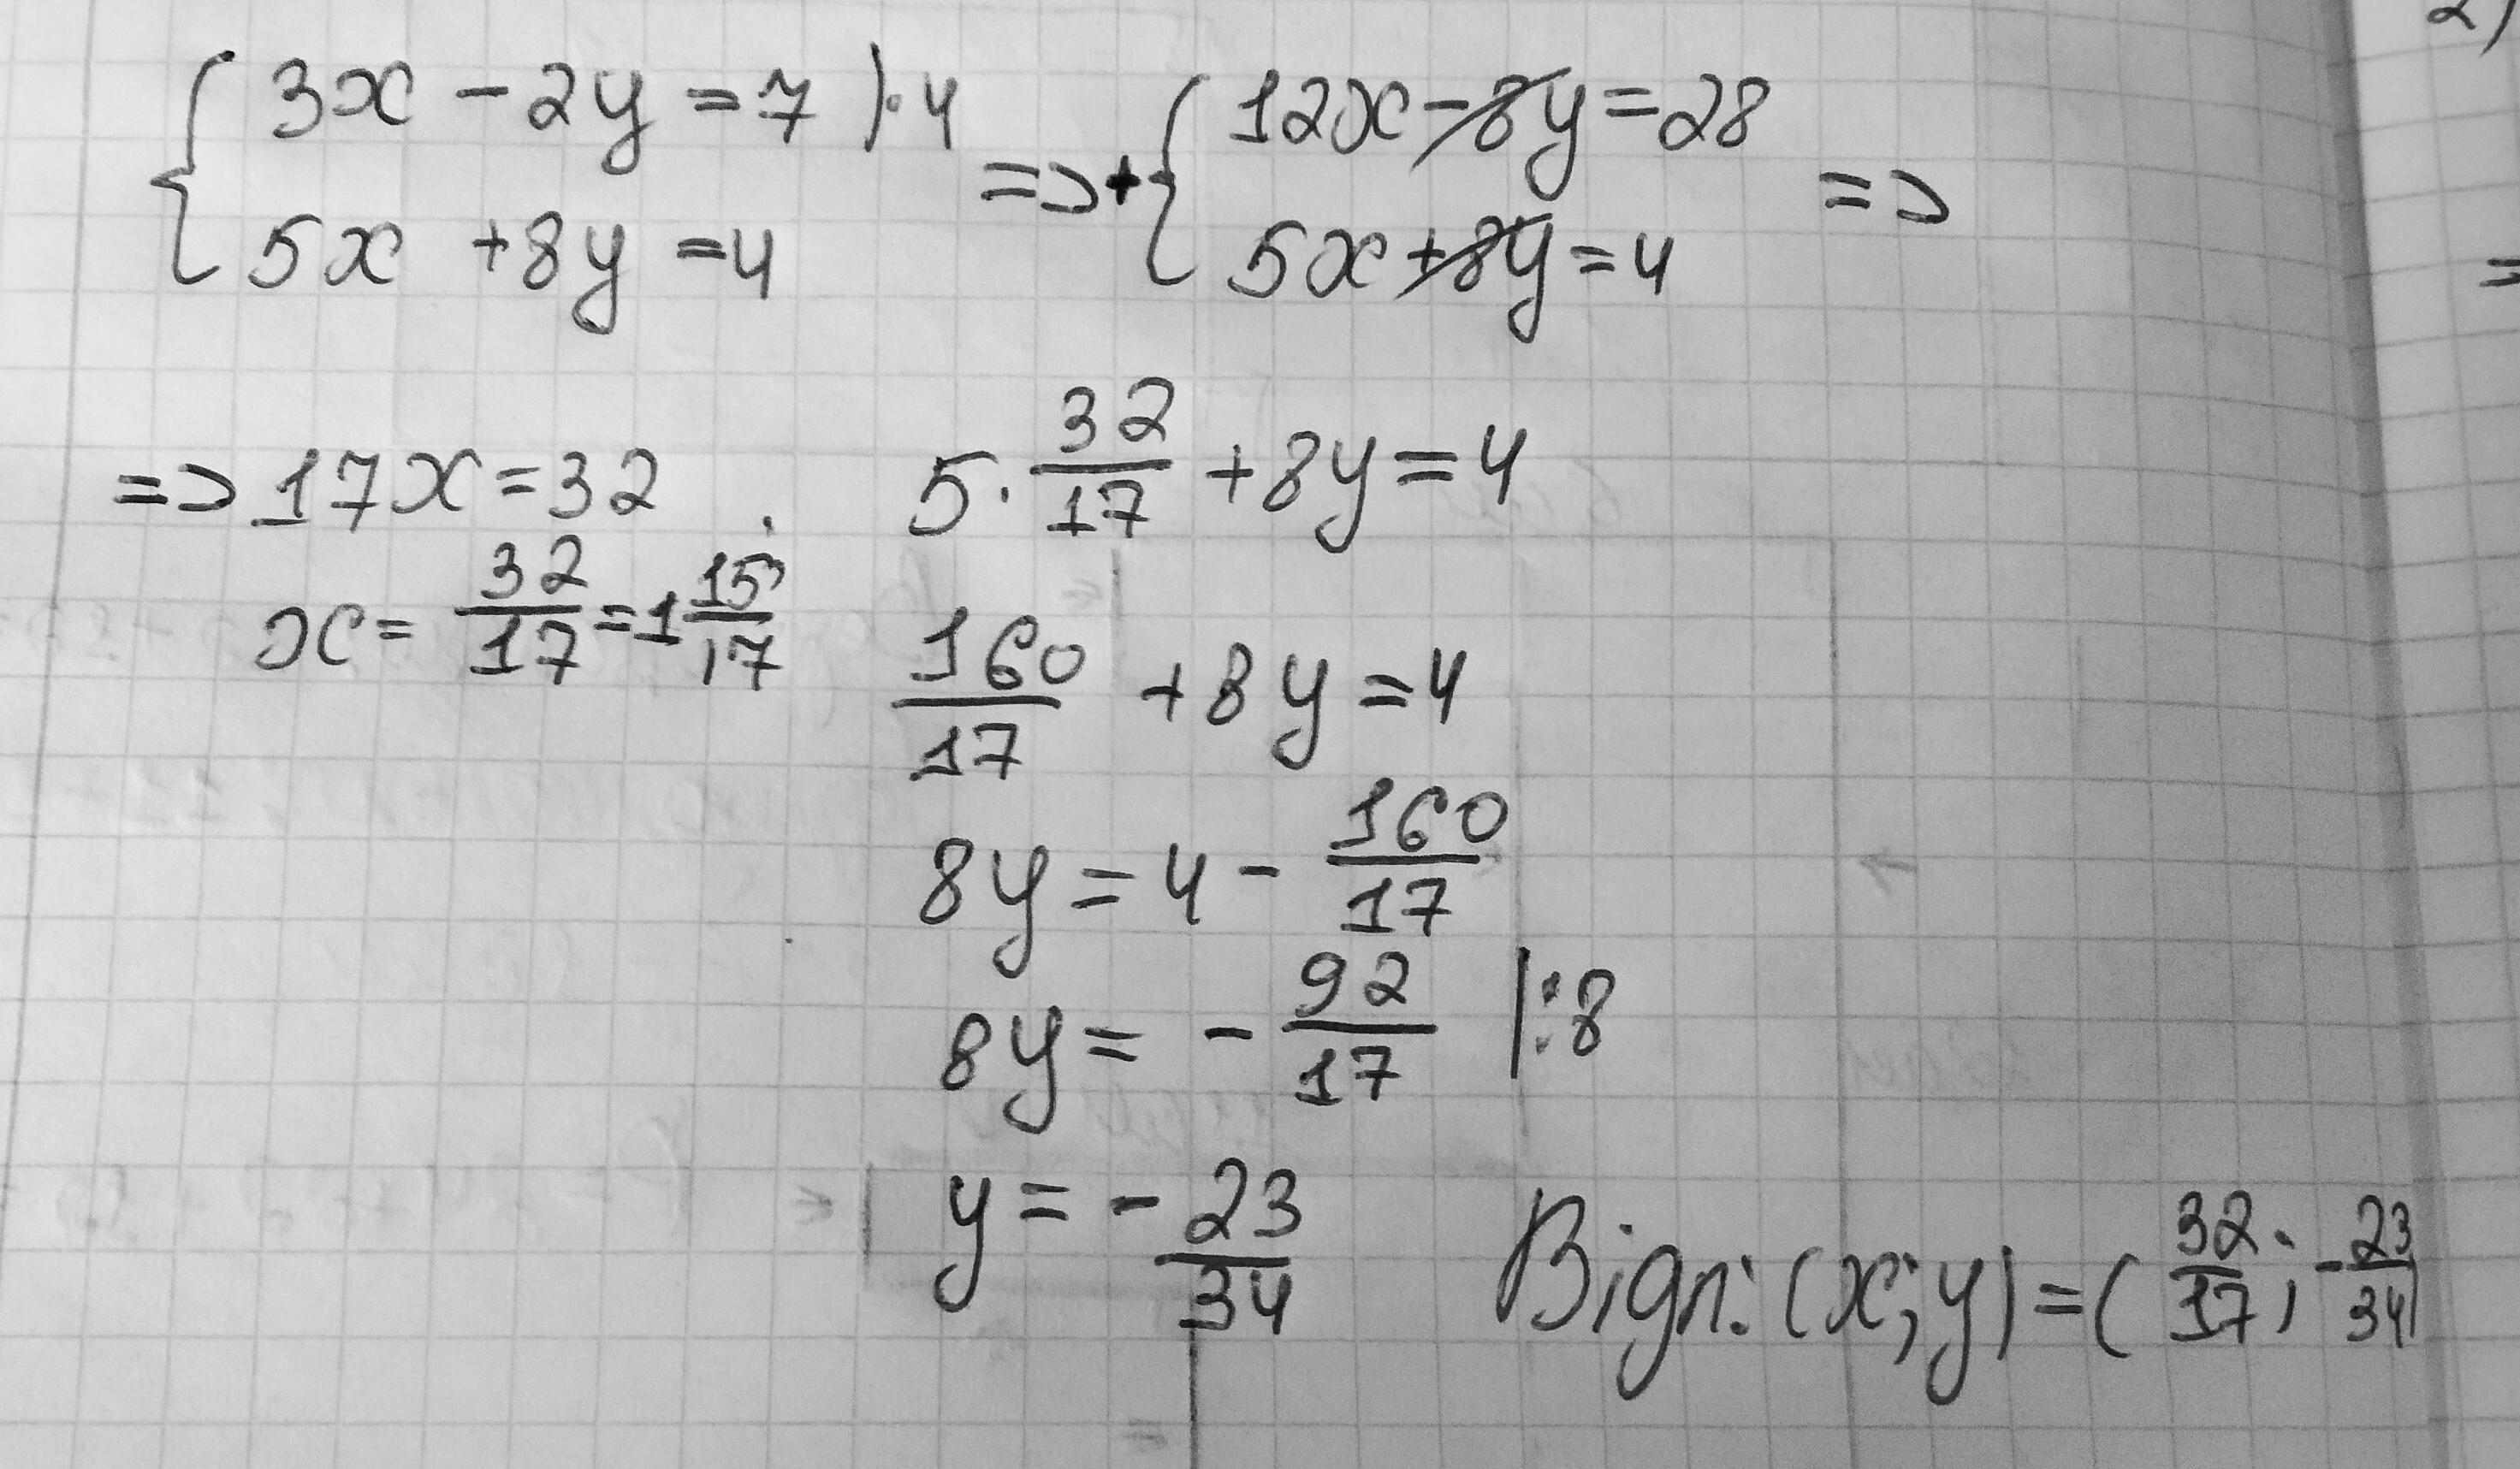 { 3x - 2y = 7 |·4
5x + 8y = 4
=> + { 12x - 8y = 28
5x + 8y = 4
=>
=> 17x = 32
x = 32/17 = 1 15/17
5 · 32/17 + 8y = 4
160/17 + 8y = 4
8y = 4 - 160/17
8y = - 92/17 |:8
y = - 23/34
Відп: (x; y) = ( 32/17 ; - 23/34 )
2)
=